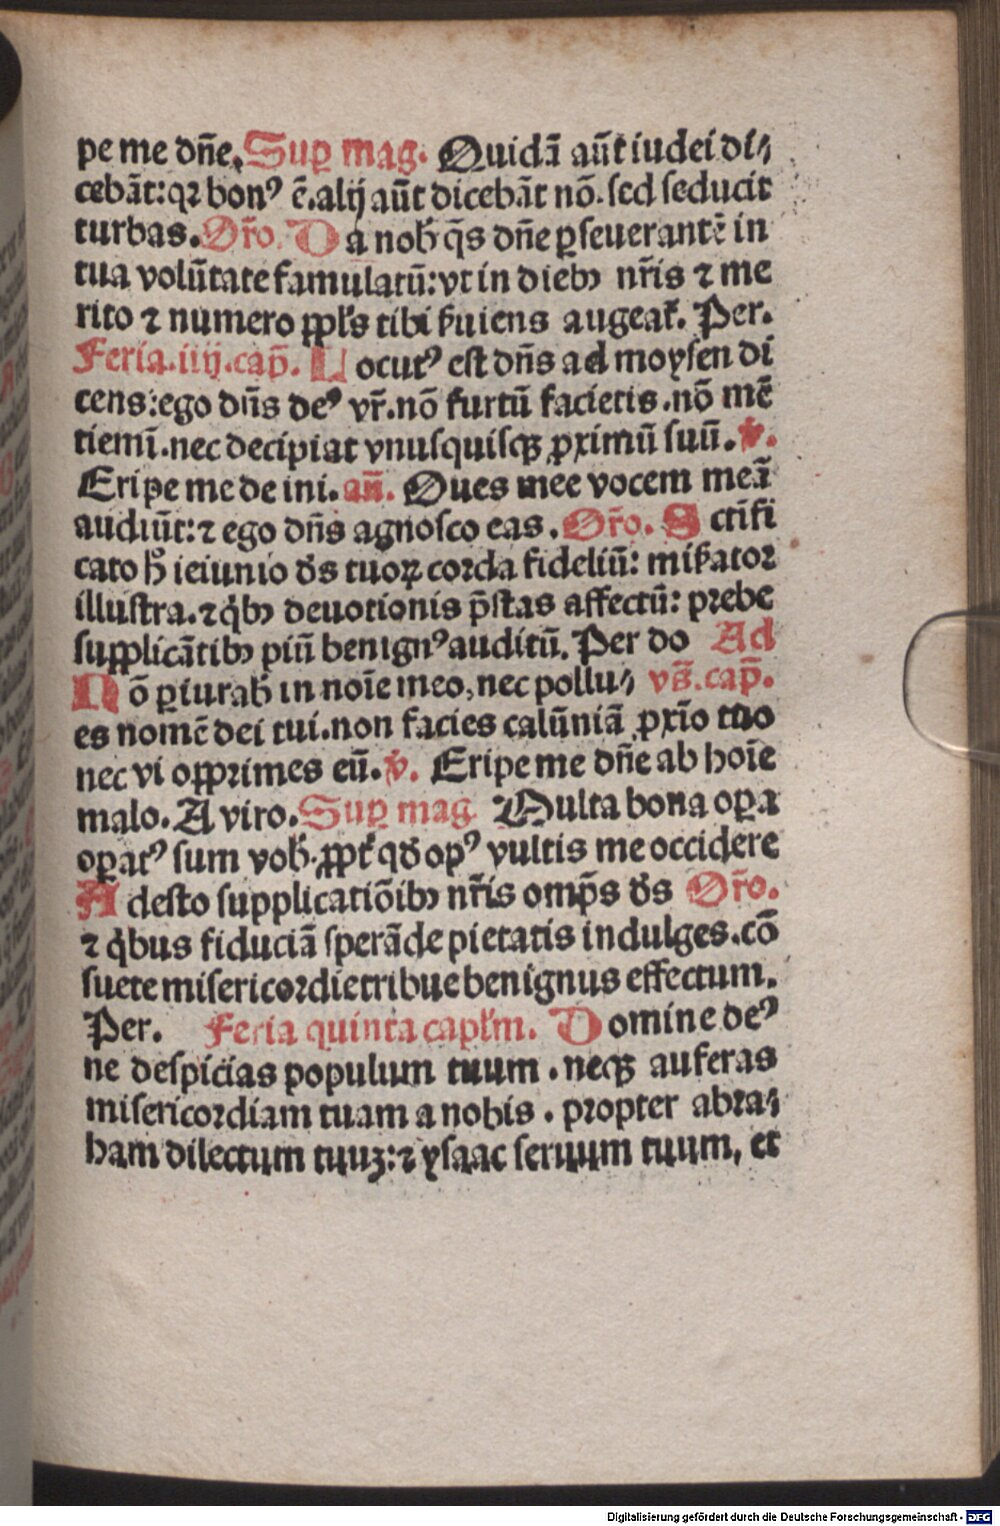 pe me dn̄e. Sup̲ mag. Quidā aūt iudei di⸗
cebāt: qꝛ bonꝰ ē. alij aūt dicebāt nō. sed seducit
turbas. Or̄o. Da nob̄ q̄s dn̄e ꝑseuerantē in
tua volūtate famulatū: vt in diebꝫ nr̄is ⁊ me
rito ⁊ numero ꝓpl's tibi ẜuiens augeat᷑. Per.
Feria. iiij. cap̄. Locutꝰ est dn̄s ad moysen di
cens: ego dn̄s deꝰ vr̄. nō furtū facietis. nō mē
tiemī. nec decipiat vnusquisqꝫ ꝓximū suū. v̄.
Eripe me de ini. an̄. Oues mee vocem meā
audiūt: ⁊ ego dn̄s agnosco eas. Or̄o. Sctīfi
cato h̄ ieiunio ds̄ tuoꝝ corda fideliū: miẜator
illustra. ⁊ qͥbꝫ deuotionis p̄stas affectū: prebe
supplicātibꝫ piū benignꝰ auditū. Per do Ad
Nō ꝑiurab̄ in noīe meo, nec pollu⸗ vs̄. cap̄.
es nomē dei tui. non facies calūniā ꝓxīo tuo
nec vi opprimes eū. v̄. Eripe me dn̄e ab hoīe
malo. A viro. Sup̲ mag Multa bona oꝑa
oꝑatꝰ sum vob̄. ꝓpt᷑ qd̄ opꝰ vultis me occidere
Adesto supplicatiōibꝫ nr̄is omp̄s ds̄ Or̄o.
⁊ qͥbus fiduciā sperāde pietatis indulges. cō
suete misericordie tribue benignus effectum.
Per. Feria quinta capl'm. Domine deꝰ
ne despicias populum tuum. neqꝫ auferas
misericordiam tuam a nobis. propter abra⸗
ham dilectum tuuꝫ: ⁊ ysaac seruum tuum, et
Digitalisierung gefördert durch die Deutsche Forschungsgemeinschaft - DFG